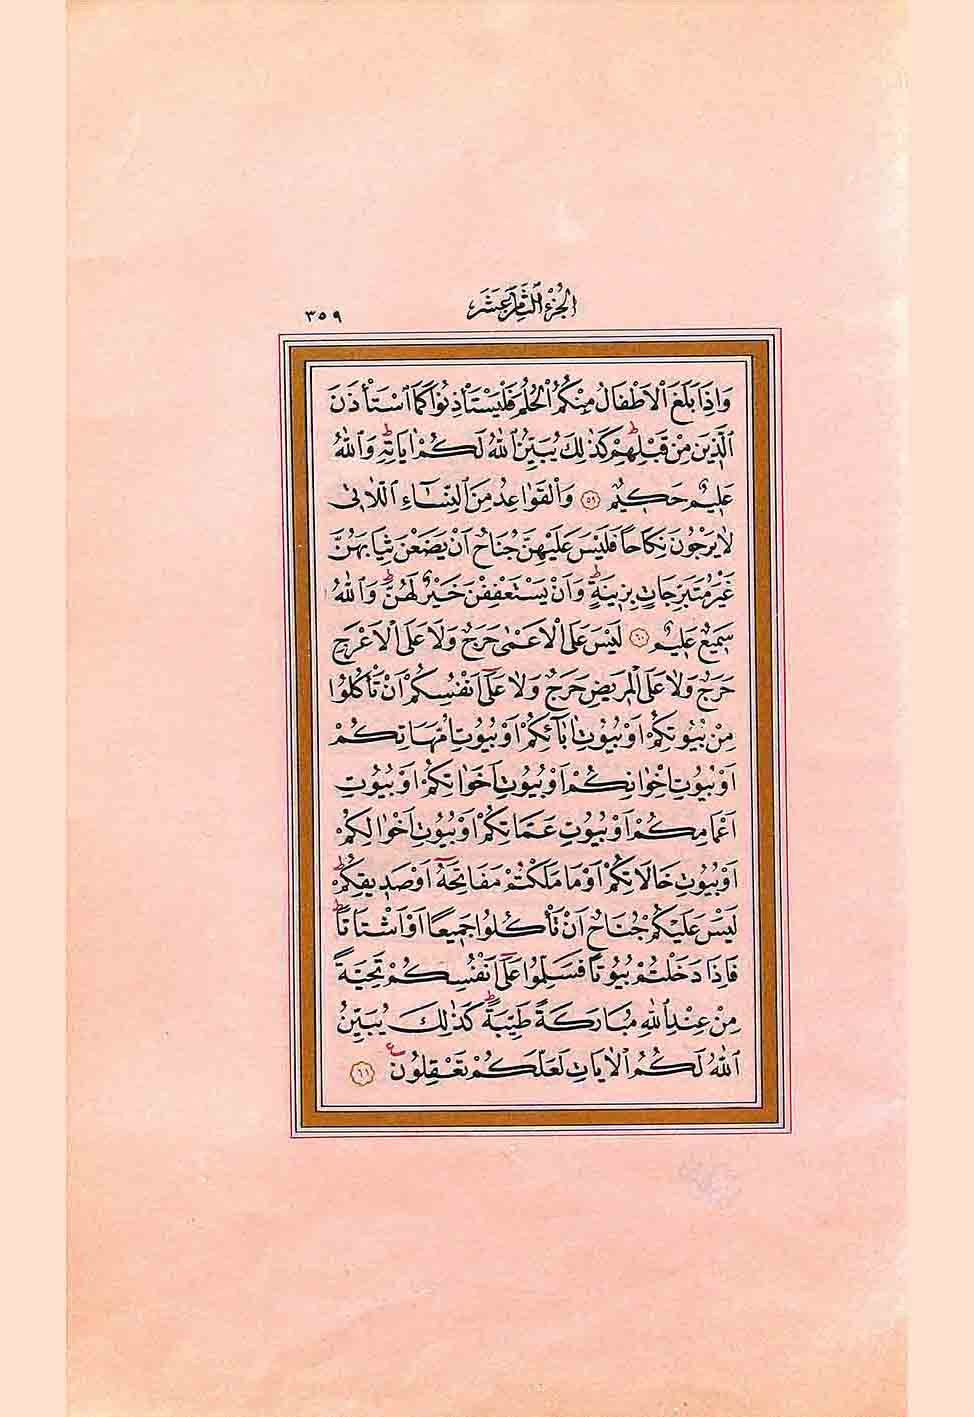 الجزء الثامن عشر
٣٥٩
وَاِذَا بَلَغَ الْاَطْفَالُ مِنْكُمُ الْحُلُمَ فَلْيَسْتَأْذِنُوا كَمَا اسْتَأْذَنَ
الَّذِينَ مِنْ قَبْلِهِمْ ط كَذٰلِكَ يُبَيِّنُ اللّٰهُ لَكُمْ اٰيَاتِهِ ط وَاللّٰهُ
عَلِيمٌ حَكِيمٌ ٥٩ وَالْقَوَاعِدُ مِنَ النِّسَٓاءِ الّٰلاتِى
لَا يَرْجُونَ نِكَاحًا فَلَيْسَ عَلَيْهِنَّ جُنَاحٌ اَنْ يَضَعْنَ ثِيَابَهُنَّ
غَيْرَ مُتَبَرِّجَاتٍ بِزِينَةٍ ط وَاَنْ يَسْتَعْفِفْنَ خَيْرٌ لَهُنَّ ط وَاللّٰهُ
سَمِيعٌ عَلِيمٌ ٦٠ لَيْسَ عَلَى الْاَعْمٰى حَرَجٌ وَلَا عَلَى الْاَعْرَجِ
حَرَجٌ وَلَا عَلَى الْمَرِيضِ حَرَجٌ وَلَا عَلٰٓى اَنْفُسِكُمْ اَنْ تَأْكُلُوا
مِنْ بُيُوتِكُمْ اَوْ بُيُوتِ اٰبَٓائِكُمْ اَوْ بُيُوتِ اُمَّهَاتِكُمْ
اَوْ بُيُوتِ اِخْوَانِكُمْ اَوْ بُيُوتِ اَخَوَاتِكُمْ اَوْ بُيُوتِ
اَعْمَامِكُمْ اَوْ بُيُوتِ عَمَّاتِكُمْ اَوْ بُيُوتِ اَخْوَالِكُمْ
اَوْ بُيُوتِ خَالَاتِكُمْ اَوْ مَا مَلَكْتُمْ مَفَاتِحَهُٓ اَوْ صَدِيقِكُمْ ط
لَيْسَ عَلَيْكُمْ جُنَاحٌ اَنْ تَأْكُلُوا جَمِيعًا اَوْ اَشْتَاتًا ط
فَاِذَا دَخَلْتُمْ بُيُوتًا فَسَلِّمُوا عَلٰٓى اَنْفُسِكُمْ تَحِيَّةً
مِنْ عِنْدِ اللّٰهِ مُبَارَكَةً طَيِّبَةً ط كَذٰلِكَ يُبَيِّنُ
اللّٰهُ لَكُمُ الْاٰيَاتِ لَعَلَّكُمْ تَعْقِلُونَ ع ٦١